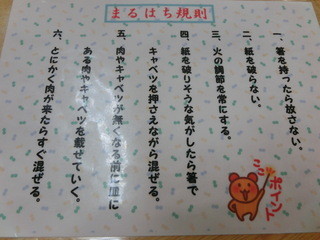 まるはち規則
一、箸を持ったら放さない。
二、紙を破らない。
三、火の調節を常にする。
四、紙を破りそうな気がしたら箸で
キャベツを押さえながら混ぜる。
五、肉やキャベツが無くなる前に皿に
ある肉やキャベツを載せていく。
六、とにかく肉が来たらすぐ混ぜる。
ここ
ポイント